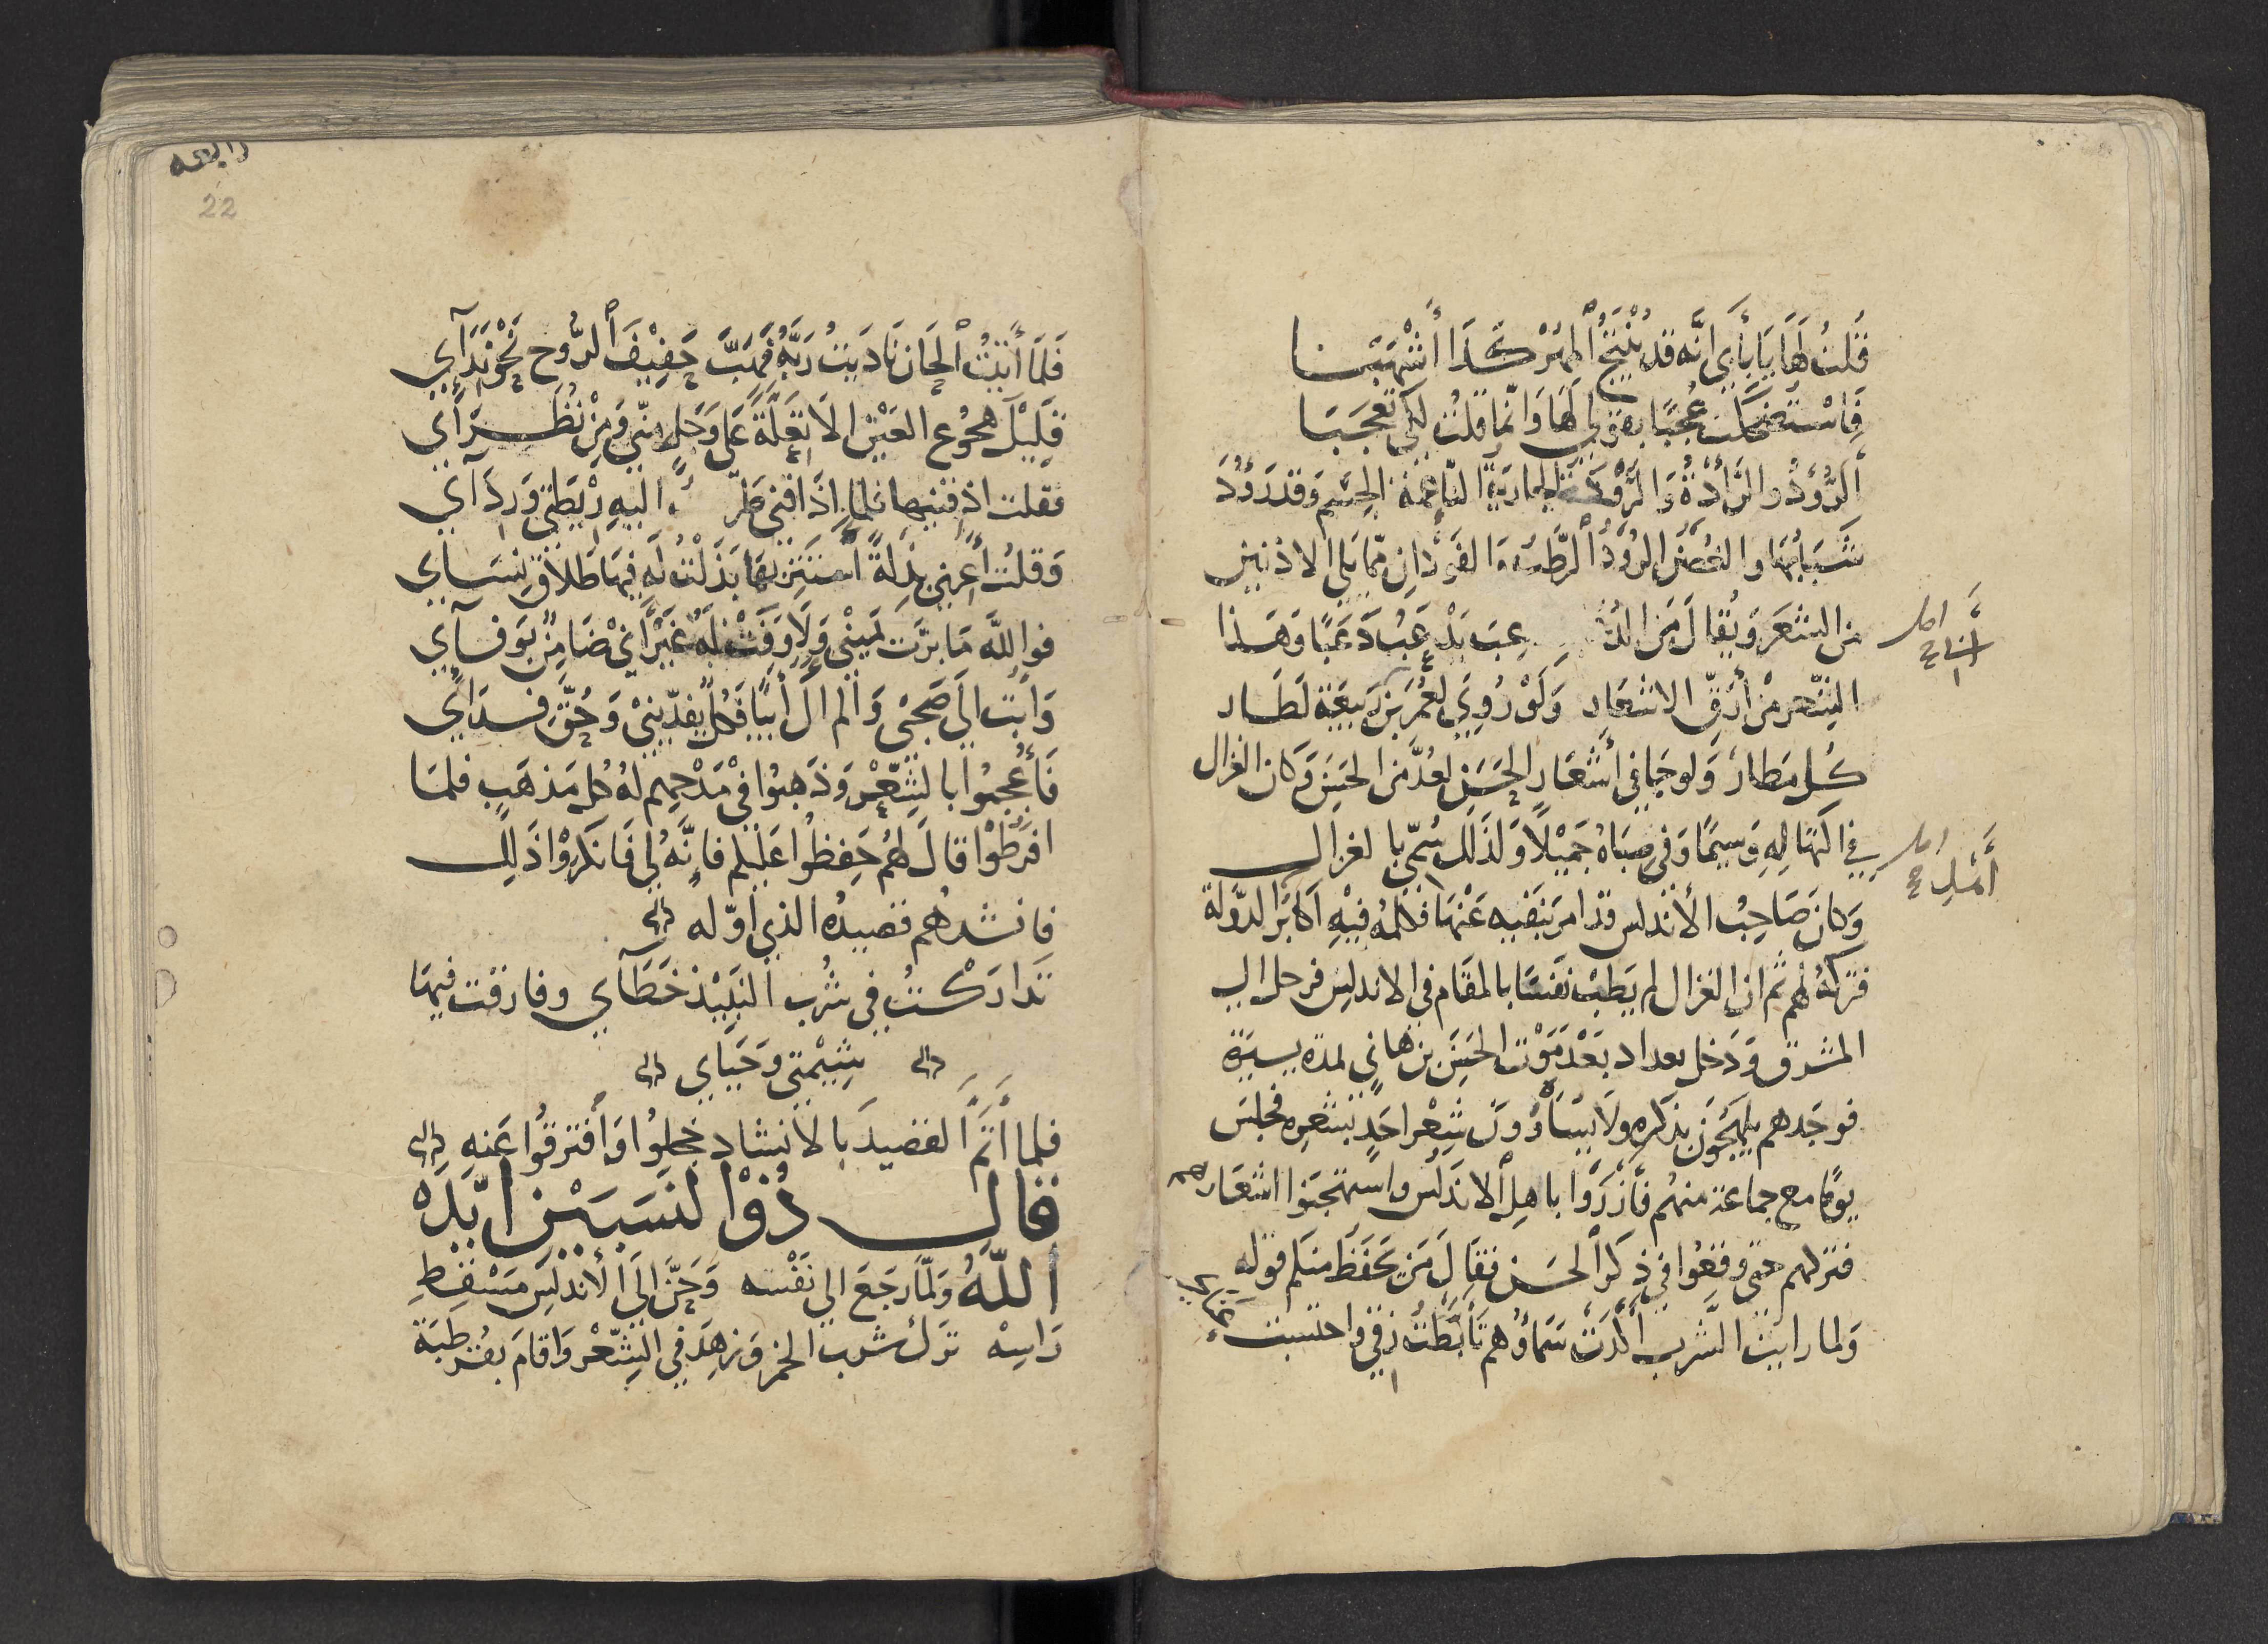 قُلتُ لَهَا يَا بِأَبِي اِنَّه قد يُنْتَجُ ٱلمُهْرُ كَذَا أَشْهَبَا
فَاسْتَضْحَكَت عُجْبًا بقَوْلي لَهَا وَانّما قلتُ لِكَى تعجَبَا
أَلرُّؤْدُ والرَّأْدَةُ وَالرَّؤْدَةُ الجارية النّاعمة الجسم وَقد رَؤُدَ
شَبَابُهَا والغُصنُ الرُؤْدُ ٱلرَّطبُ وَالفَوْدَانِ ممّا يَلى الاذنين
من الشعَر وَيُقالَ مَن الدُّ عِبَ يَدْعَبُ دَعَبًا وَهَذا
الشِّعر مْن أَرَقِّ الاشعَارِ وَلَوْ رُوِيَ لعُمَر بْن رَبيعَة لَطَار
كُل مَطار وَلو جَا في أَشْعَارِ الحَسَن لعُدَّ مَن الحَسَن وَكان الغزال
في اكتهالِهِ وَسيمًا وَفي صِبَاهُ جَميْلًا وَلذَلك سُمّى بالغزال
وَكانَ صَاحِبُ الأندلس قد امر بنَفيه عَنْهَا فكلمَهُ فيْهِ اَكابَرُ الدّوْلة
فتركهُ لهُم ثم ان الغزال لم يَطِبْ نَفسًا بالمقَام في الاندلس فرحل الى
المشرق وَدَخل بغداد بعْدَ مَوْت الحَسَن بن هاني لمدة يسيرَة
فوجَدهم يلهَجُون بذكرِه ولَا يسَاوُونَ شِعْرَ احَدٍ بشعره فجلسَ
يوْمًا مع جماعة منهُم فأزْرَوْا باهِل الاندلس واستهجنوا اشعَارهم
فتركهم حتى وقعُوا في ذكر الحسن فقالَ مَن يَحْفَظ منكم قوله
وَلما رايتُ الشَّربَ أَكْدَتْ سَمَاؤُهم تَأَبَّطْتُ زِقّي واحتسبت عَنَائي
اصل
اصل
رابعه
22
فَلمّا أَتَيْتُ الحَان نَادَيتُ رَبَّهُ فهَبَّ خَفِيْفَ ٱلرُّوح نحْوَ نِدَآئي
قَلِيْلَ هُجُوع العَيْن الا تعِلَّةً عَلى وَجَلٍ منّي وَمِنْ نُظَرَآئي
فقلت اذِقْنيها فلمّا اذَاقَني طَرَحْتُ اليهِ رَيْطَتي وَرِدَآئي
وَقلتُ أَعِرْني بِذْلَةً أَسْتَتِرْ بهَا بَذَلْتُ لَه فيهَا طَلاقَ نِسَائي
فوالله مَا برَّت يَمِيْني وَلَا وَفَتْ لَهُ غَيْرَ أَنّي ضَامِنٌ بوَفَآئي
وَابْتُ الَى صَحْبي وَلم اَكُ آئبًا فَكلٌّ يُفدّينيْ وَحُقَّ فِدَائي
فَأُعْجبُوا بالشِّعْر وَذَهَبُوا فيْ مَدْحِهم لهُ كل مَذهَب فلمَا
افرَطُوْا قالَ لهُم خَفِّظُوا عَلَيْكم فانَّهُ لي فَانكرُوْا ذَلِك
فانشدهم قصيدهُ الذي اوّله
تَدارَكْتُ في شُرْب النَّبِيْذ خَطَآئي وفارقْت فيهَا
شِيْمَتي وَحَيَائي
فلما أَتَمَّ القصيدَ بالانشاد خجلوُا وَأفترقُوا عَنهِ
قال ذُوْ النَسَبَيْنِ ايّدَهُ
اللّهُ وَلمّا رَجَعَ الي نَفْسه وَحَنَّ الَى الأندلس مَسْقِطِ
رَاسِهْ ترَك شرب الخمر وَزهِدَ في الشِّعْر وَاقامَ بقُرْطبَة